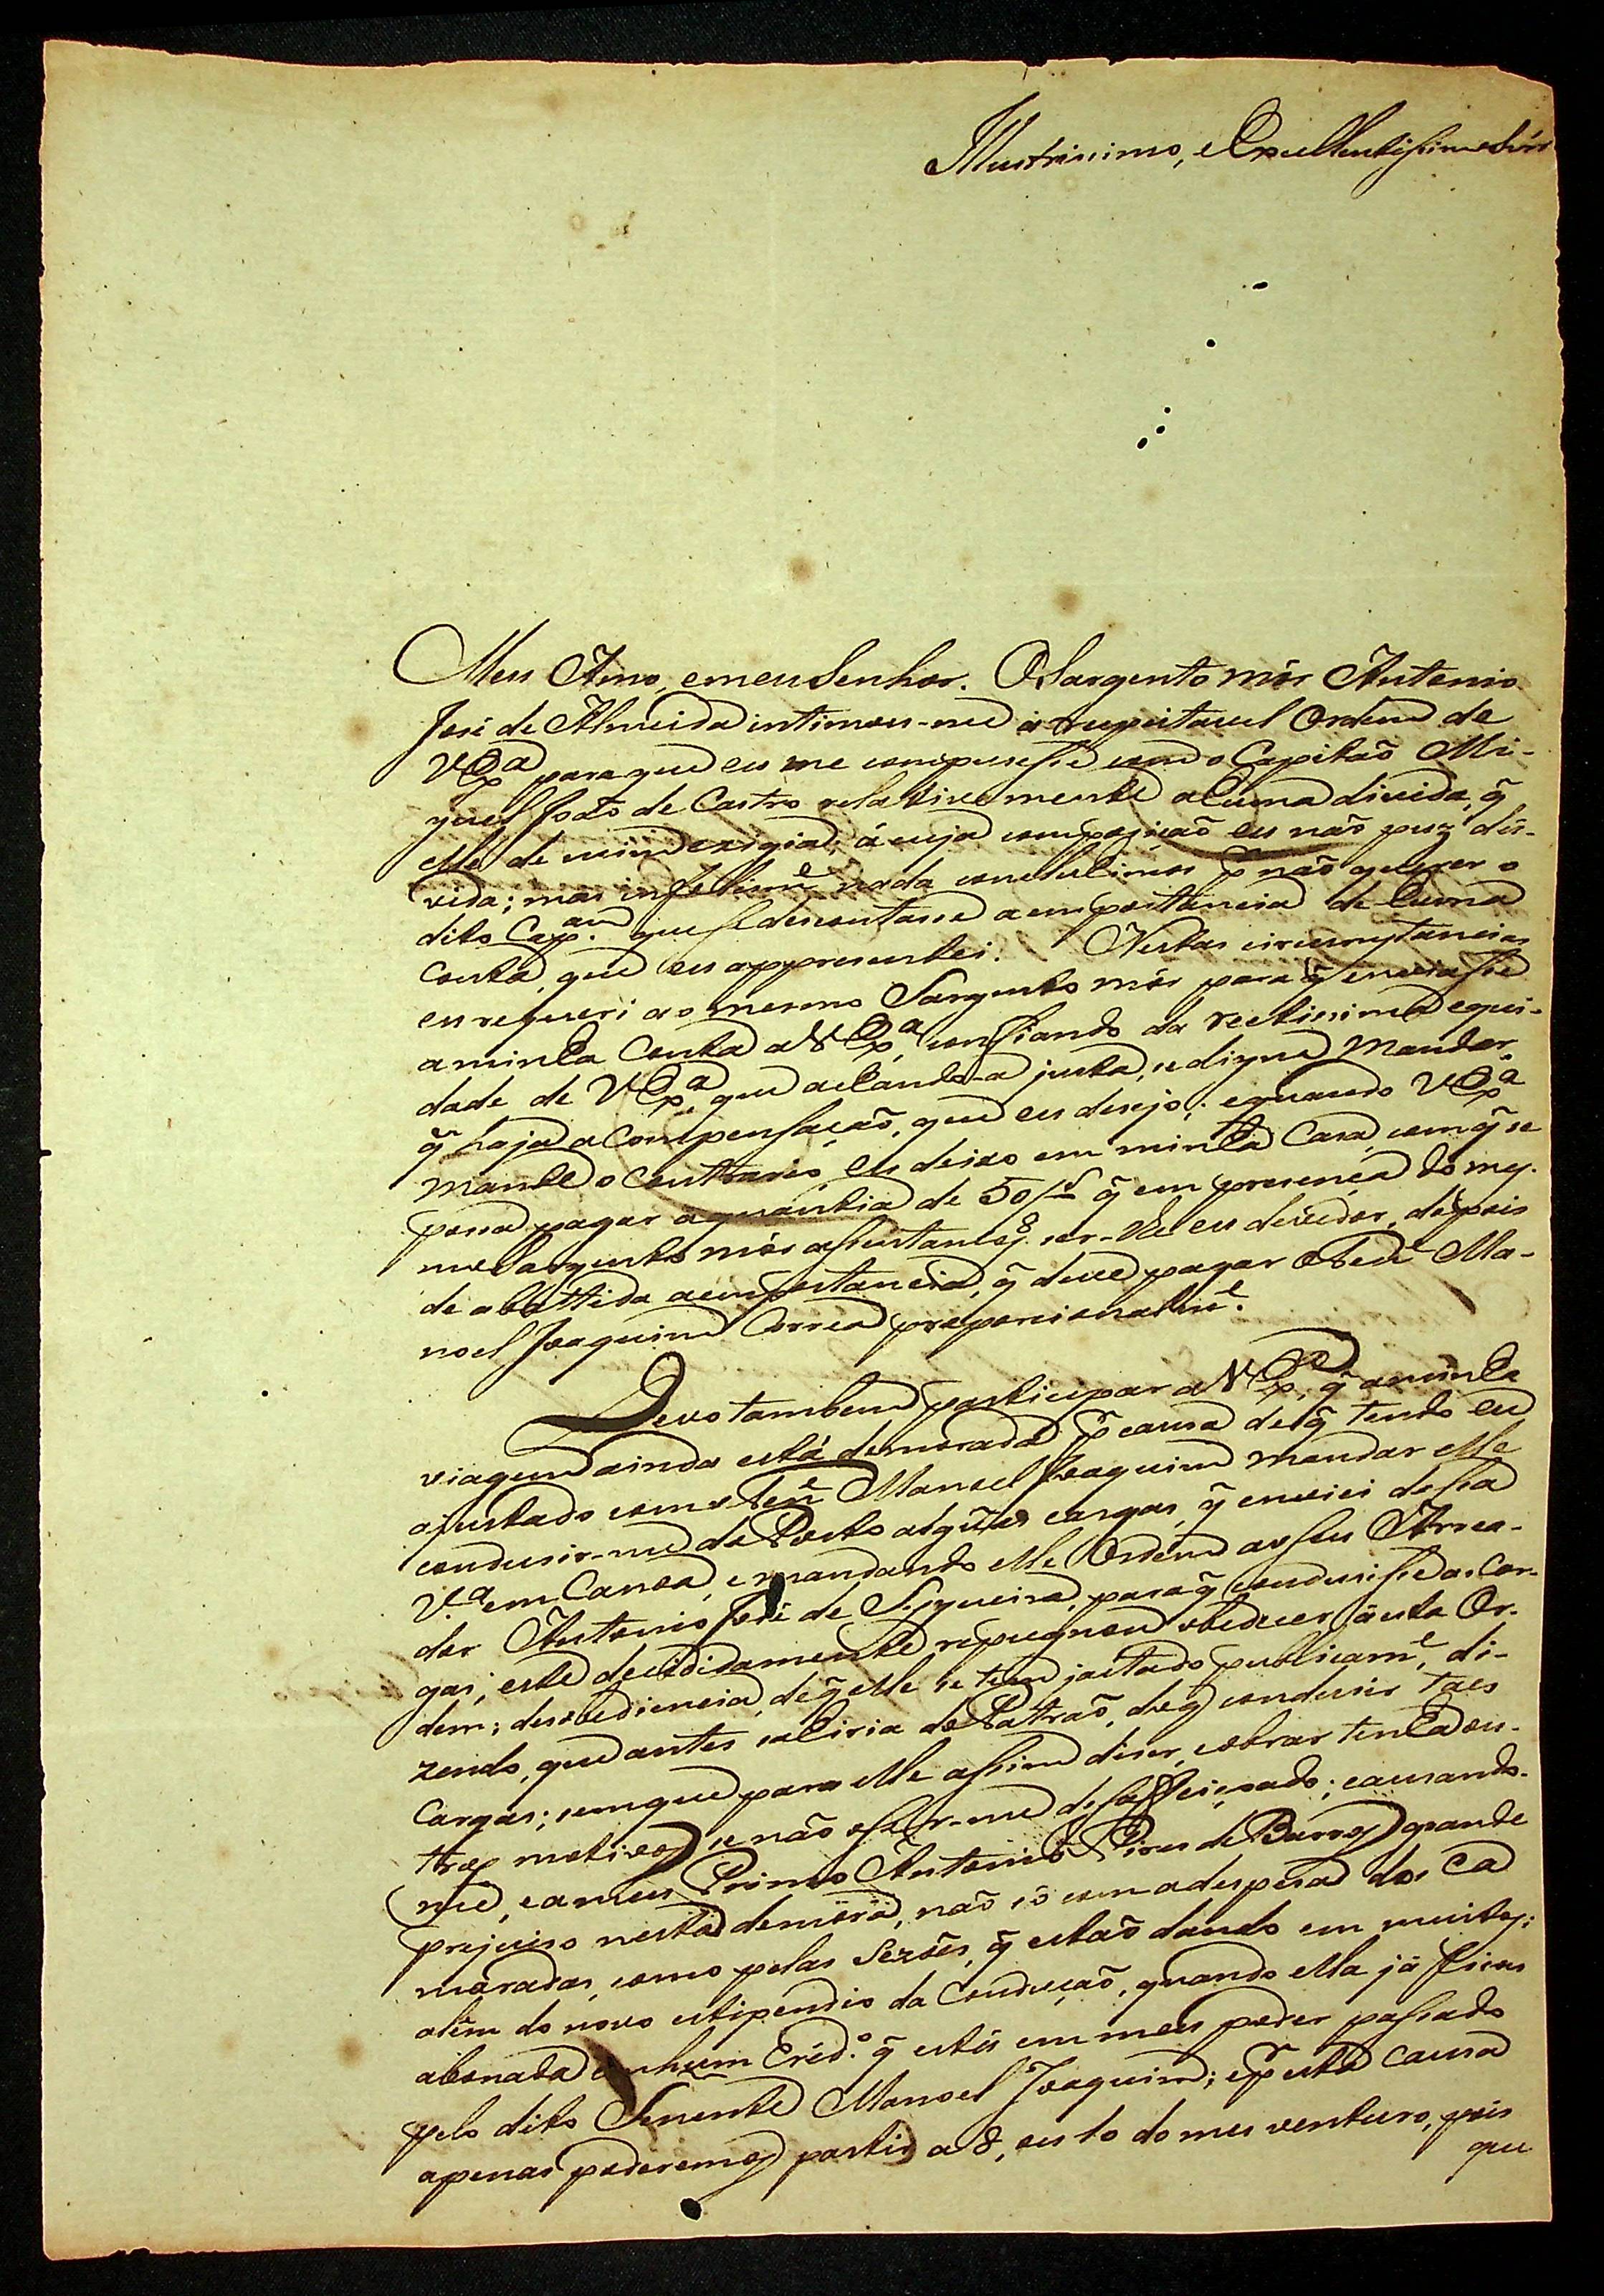 Illustrissimo, e Excellentissimo Snr̃
Meu Amo, e meu Senhor. O Sargento mór Antonio
José de Almeida intimou-me a respeitavel Ordem de
V Exª para que eu me compusesse com o Capitaõ Mi-
guel Joaõ de Castro relativemente a huma divida, q̃
elle de mim exigia, á cuja composiçaõ eu naõ puz dú-
vida; mas infelismᵉ nada concluhimos p̃ naõ querer o
dito Cap.ᵃᵐ que se descontasse a emportancia de huma
Conta, que eu appresentei. Nestas circunstancias
eu requeri ao mesmo Sargento mór para q̃ enviasse
a minha Conta a V Exª, confiando da rectissima equi-
dade de V Exª que achando-a justa, se digne mandar,
q̃ haja a Compensaçaõ, que eu desejo; e quando V Exª
mande o Contrario, eu deixo em minha Casa, com q̃ se
possa pagar a quantia de 50/8ª q̃ em presença do mes-
mo Sargento mór assentamos ser-lhe eu devedor, depois
de abattida a emportancia, q̃ deve pagar o Tenᵉ Ma-
noel Joaquim Correa proporcionalmᵉ.
Devo tambem participar a V Exª, q̃ a minha
viagem ainda está demorada p̃ causa de q̃ tendo eu
ajustado com o Tenᵉ Manoel Joaquim mandar elle
condusir-me do Porto algũas cargas, q̃ enviei dessa
V.ª em Canoa, e mandando elle Ordem ao seu Arrea-
dor Antonio José de Siqueira, para q̃ condusisse as Car-
gas, este decididamente repugnou obedecer á esta Or-
dem; desobediencia, de q̃ elle se tem jactado publicamᵉ, di-
zendo, que antes sahiria do Patraõ, do q̃ condusir taes
Cargas; sem que para elle assim diser, e obrar tenha ou-
tros motivos, se naõ o ser-me desaffeiçoado; causando-
me, e a meu Primo Antonio Pires de Barros grande
prejuiso nesta demora, naõ só com a despesa dos Ca
maradas, como pelas Sezões, q̃ estaõ dando em muitos;
alêm do novo estipendio da Conduçaõ, quando ella já ficou
abonada em hum Créd.º q̃ está em meu poder passado
pelo dito Tenente Manoel Joaquim; e p̃ esta causa
apenas poderemos partir a 8, ou 10 do mes venturo, pois
que